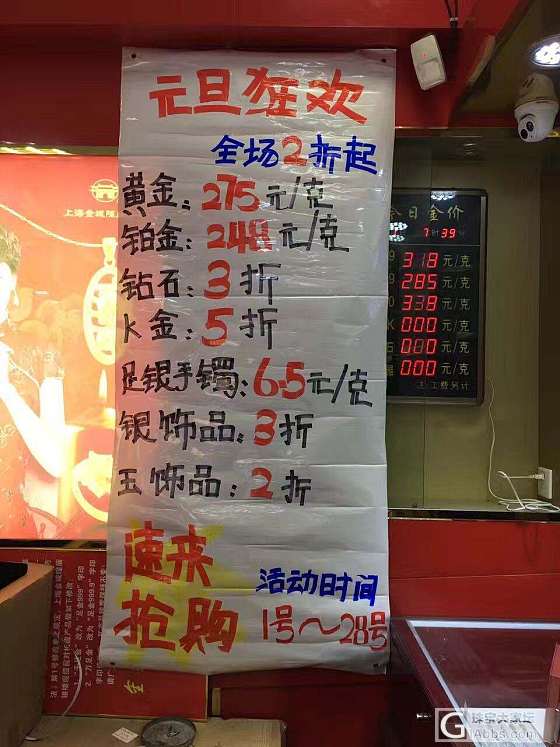 元旦狂欢
全场2折起
黄金：275元/克
铂金：248元/克
钻石：3折
K金：5折
足银手镯：6.5元/克
银饰品：3折
玉饰品：2折
速来
抢购
活动时间
1号～28号
上海金城隍
今日金价
7 39
318元/克
285元/克
338元/克
000元/克
000元/克
000元/克
注：工费另计
珠宝大家坛
Gbbs.com